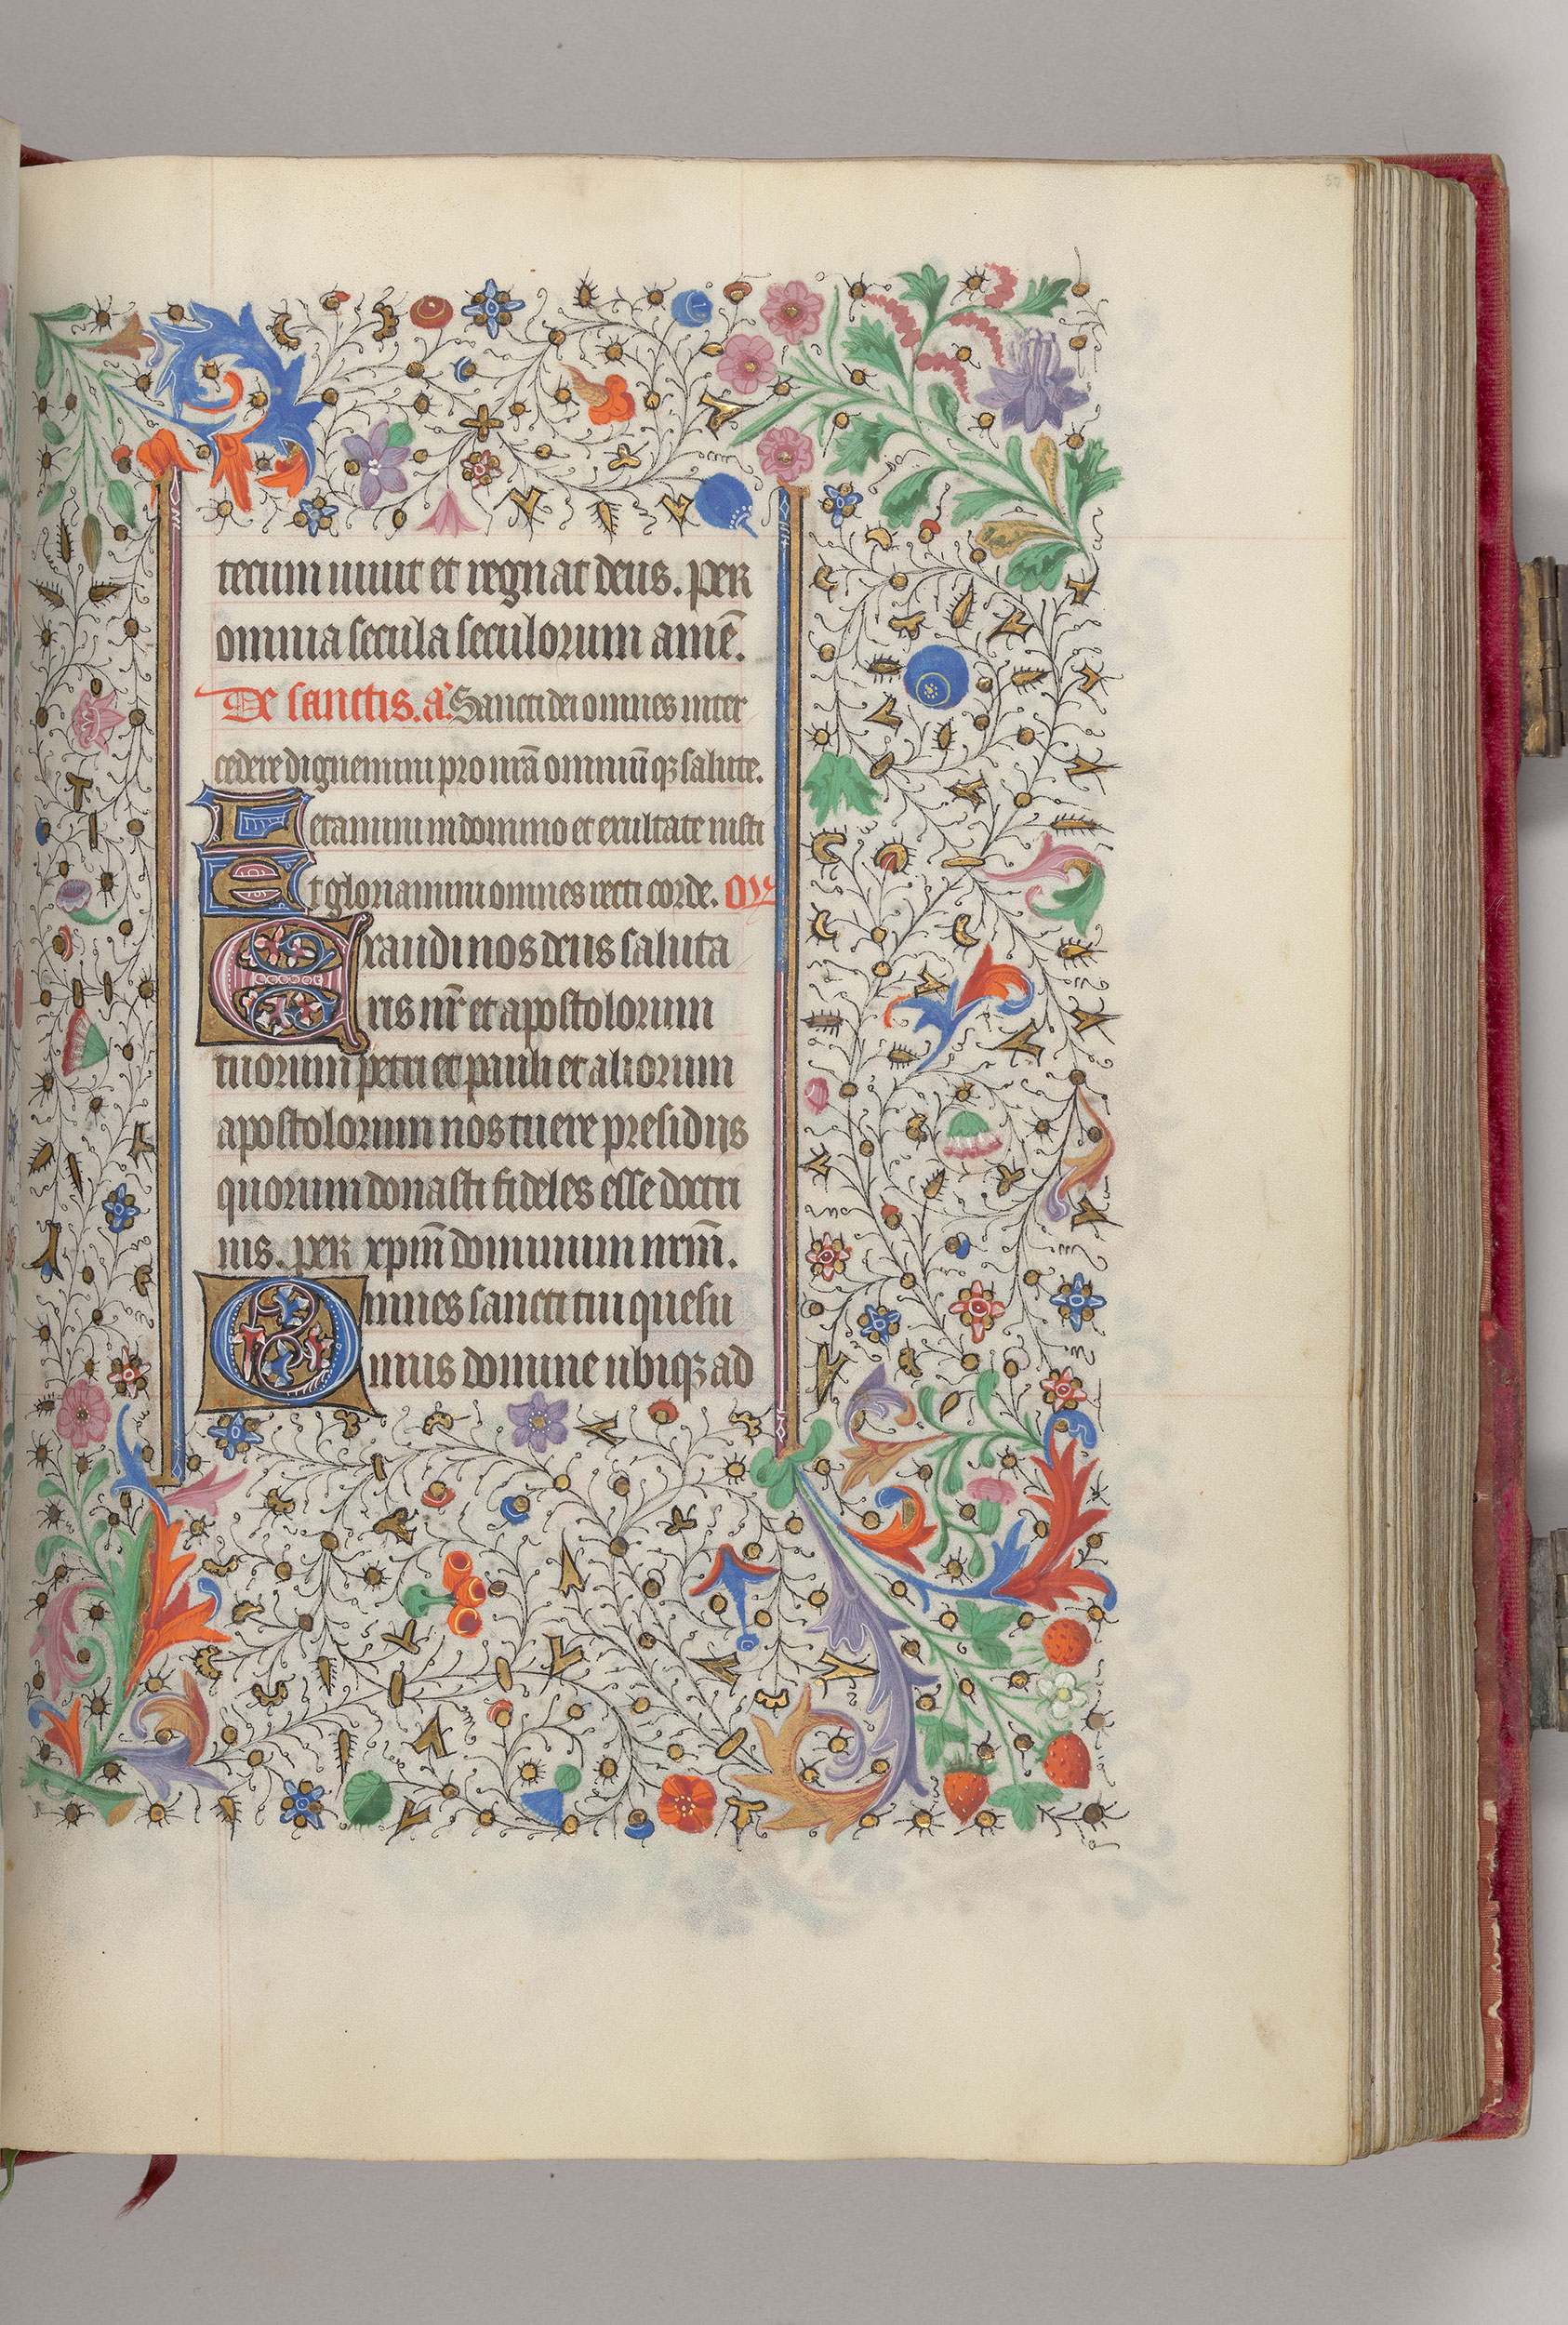 tecum viuit et regnat deus. per
omnia secula seculorum amē.
De sanctis. añ. Sancti dei omnes inter
cedere dignemini pro nrā omniūqꝫ salute.
Letamini in domino et exultate iusti
Et gloriamini omnes recti corde. Or̄
Exaudi nos deus saluta
ris nr̄ et apostolorum
tuorum petri et pauli et aliorum
apostolorum nos tuere presidiis
quorum donasti fideles esse doctri
nis. per xp̄m dominum nr̄m.
Omnes sancti tui quesu
mus domine ubiqꝫ ad